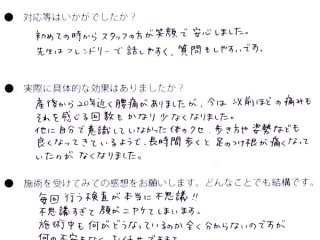 ● 対応等はいかがでしたか?
初めての時からスタッフの方が笑顔で安心しました。
先生はフレンドリーで話しやすく、質問もしやすいです。
● 実際に具体的な効果はありましたか?
産後から20年近く腰痛がありましたが、今は以前ほどの痛みも
それを感じる回数もかなり少なくなりました。
他に自分で意識していなかった体のクセ、歩き方や姿勢なども
良くなってきているようで、長時間歩くと足のつけ根が痛くなって
いたのがなくなりました。
● 施術を受けてみての感想をお願いします。どんなことでも結構です。
毎回行う検査が本当に不思議!!
不思議すぎて顔がニヤけてしまいます。
施術中も何がどうなっているのか全く分からないのですが